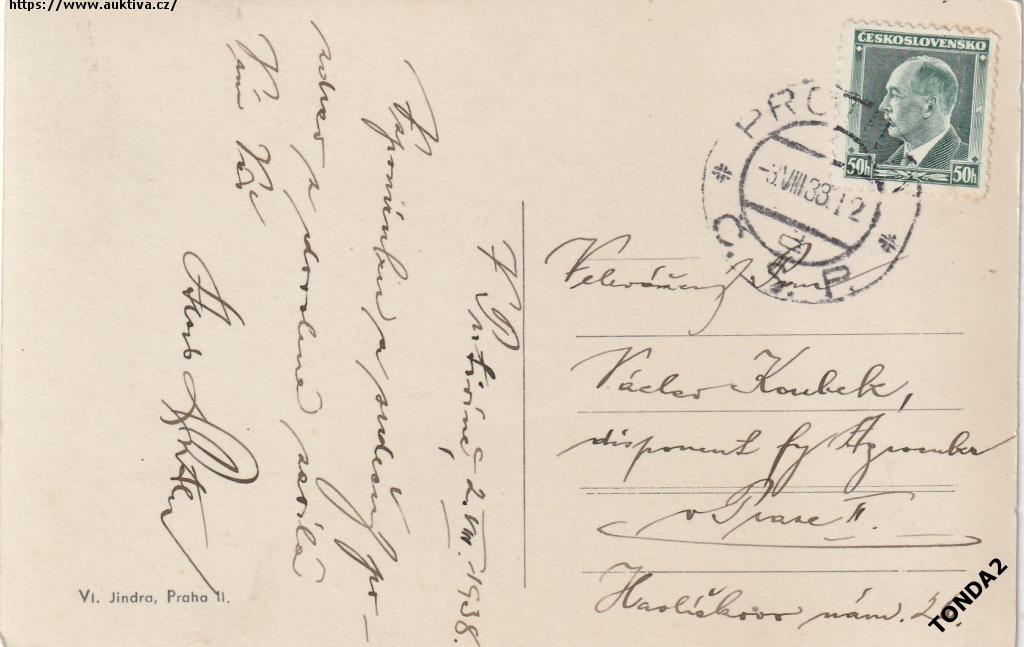 https://www.auktiva.cz/
ČESKOSLOVENSKO
50h 50h
PRČI
-3.VIII.38.12
Č. S. P.
V 2.VIII.1938.
Vzpomínku a srdečný po-
zdrav z dovolené zasílá
Vám Váš
Velevážený Pan
Václav Koubek,
disponent fy
v Praze II.
Havlíčkovo nám. 2
Vl. Jindra, Praha II.
TONDA2